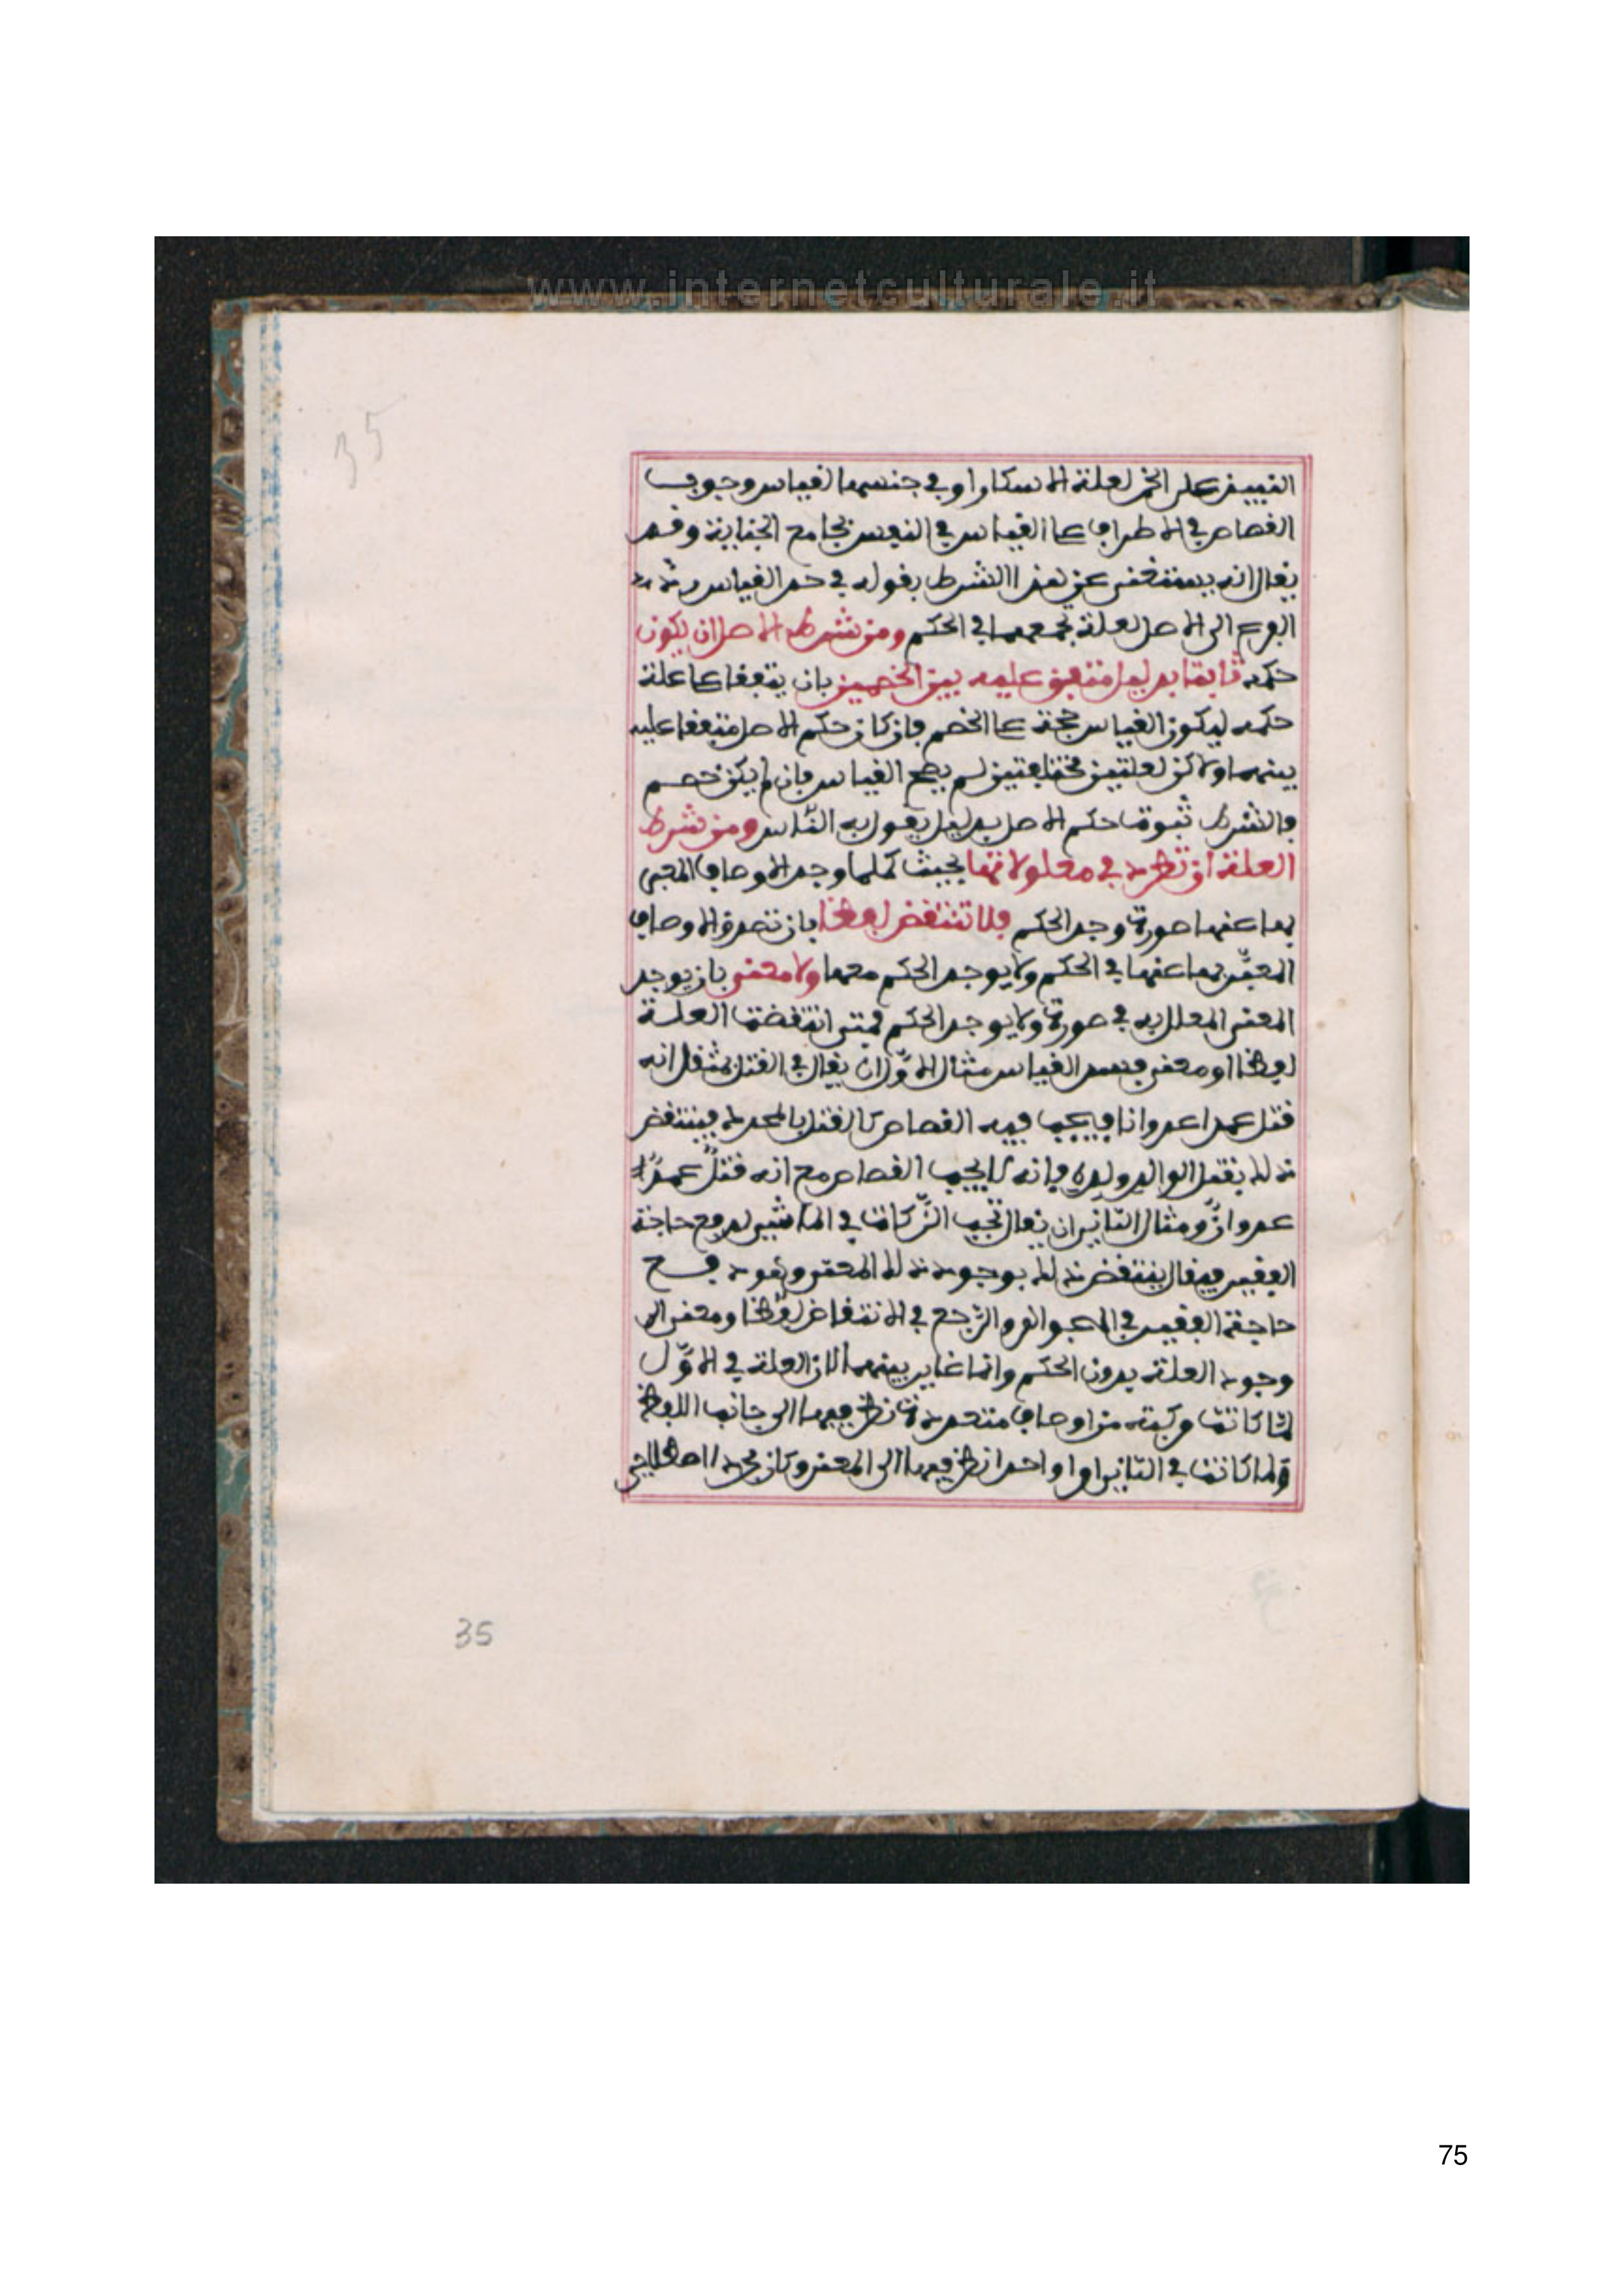 www.internetculturale.it
35
النبيذ على الخمر لعلة الاسكار او في جنسها لقياس وجوب
القصاص في الاطراف على القياس في النفس بجامع الجناية وقد
يقال انه يستغنى عن هذا الشرط بقوله في حد القياس رد
الفرع الى الاصل لعلة تجمعهما في الحكم ومن شرط الاصل ان يكون
حكمه ثابتا بدليل متفق عليه بين الخصمين بان يتفقا على علة
حكمه ليكون القياس حجة على الخصم فان كان حكم الاصل متفقا عليه
بينهما ولاكن لعلتين مختلفتين لم يصح القياس فان لم يكن خصم
فالشرط ثبوت حكم الاصل بدليل يقول به القياس ومن شرط
العلة ان تطرد في معلولاتها بحيث كلما وجد الاوصاف المعبر
بها عنها صورة وجد الحكم فلا تنتقض لفظا بان تصدق الاوصاف
المعبّر بها عنها في الحكم ولا يوجد الحكم معها ولا معنى بان يوجد
المعنى المعلل به في صورة ولا يوجد الحكم فمتى انتقضت العلة
لفظا او معنى فسد القياس مثال الاوّل ان يقال في القتل بمثقل انه
قتل عمدا عدوانا فيجب فيه القصاص كالقتل بالمحدد فينتقض
ذلك بقتل الوالد ولده فانه لا يجب القصاص مع انه قتلٌ عمدٌ
عدوانٌ ومثال الثاني ان يقال تجب الزّكاة في المواشي لدفع حاجة
الفقير فيقال ينتقض ذلك بوجود ذلك المعنى وهو دفع
حاجة الفقير في الجواهر والمرجع في الانتقاض لفظا ومعنى الى
وجود العلة بدون الحكم وانما غاير بينهما لان العلة في الاوّل
لمّا كانت مركبة من اوصاف متعددة نظر فيها الى جانب اللفظ
ولما كانت في الثاني امرا واحدا نظر فيها الى المعنى وكان مجرد اصطلاح
35
75